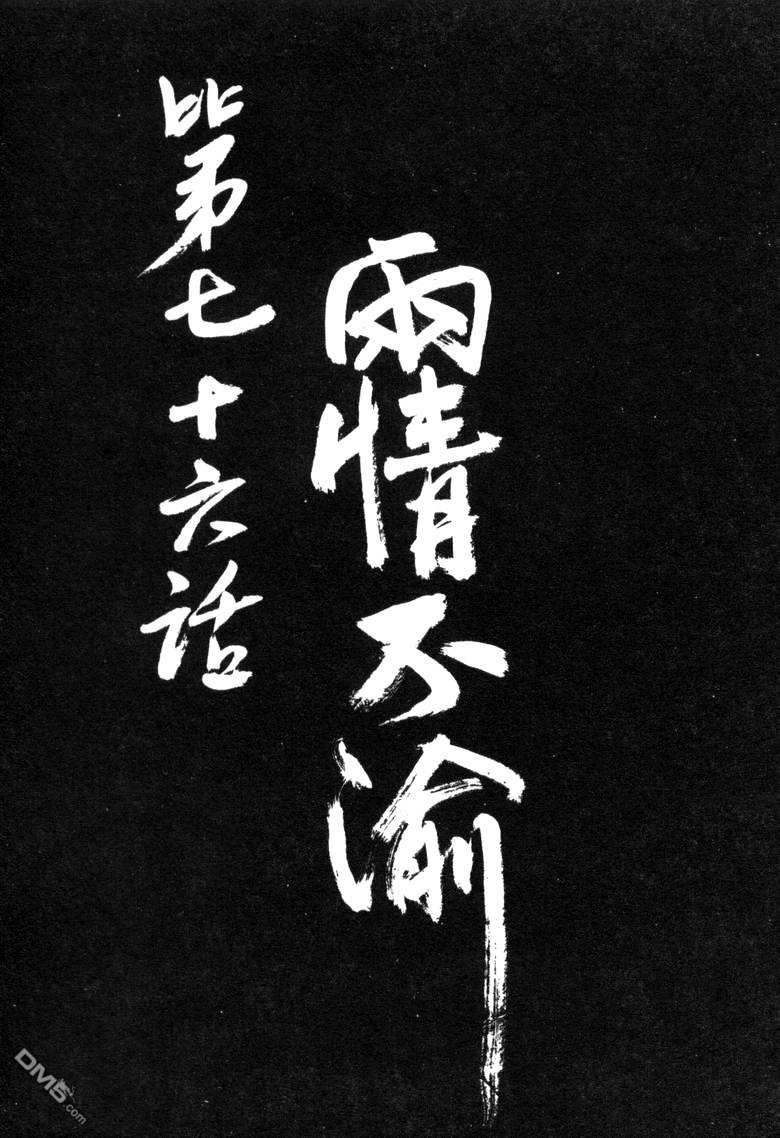 兩情不渝
第七十六話
DM5.com